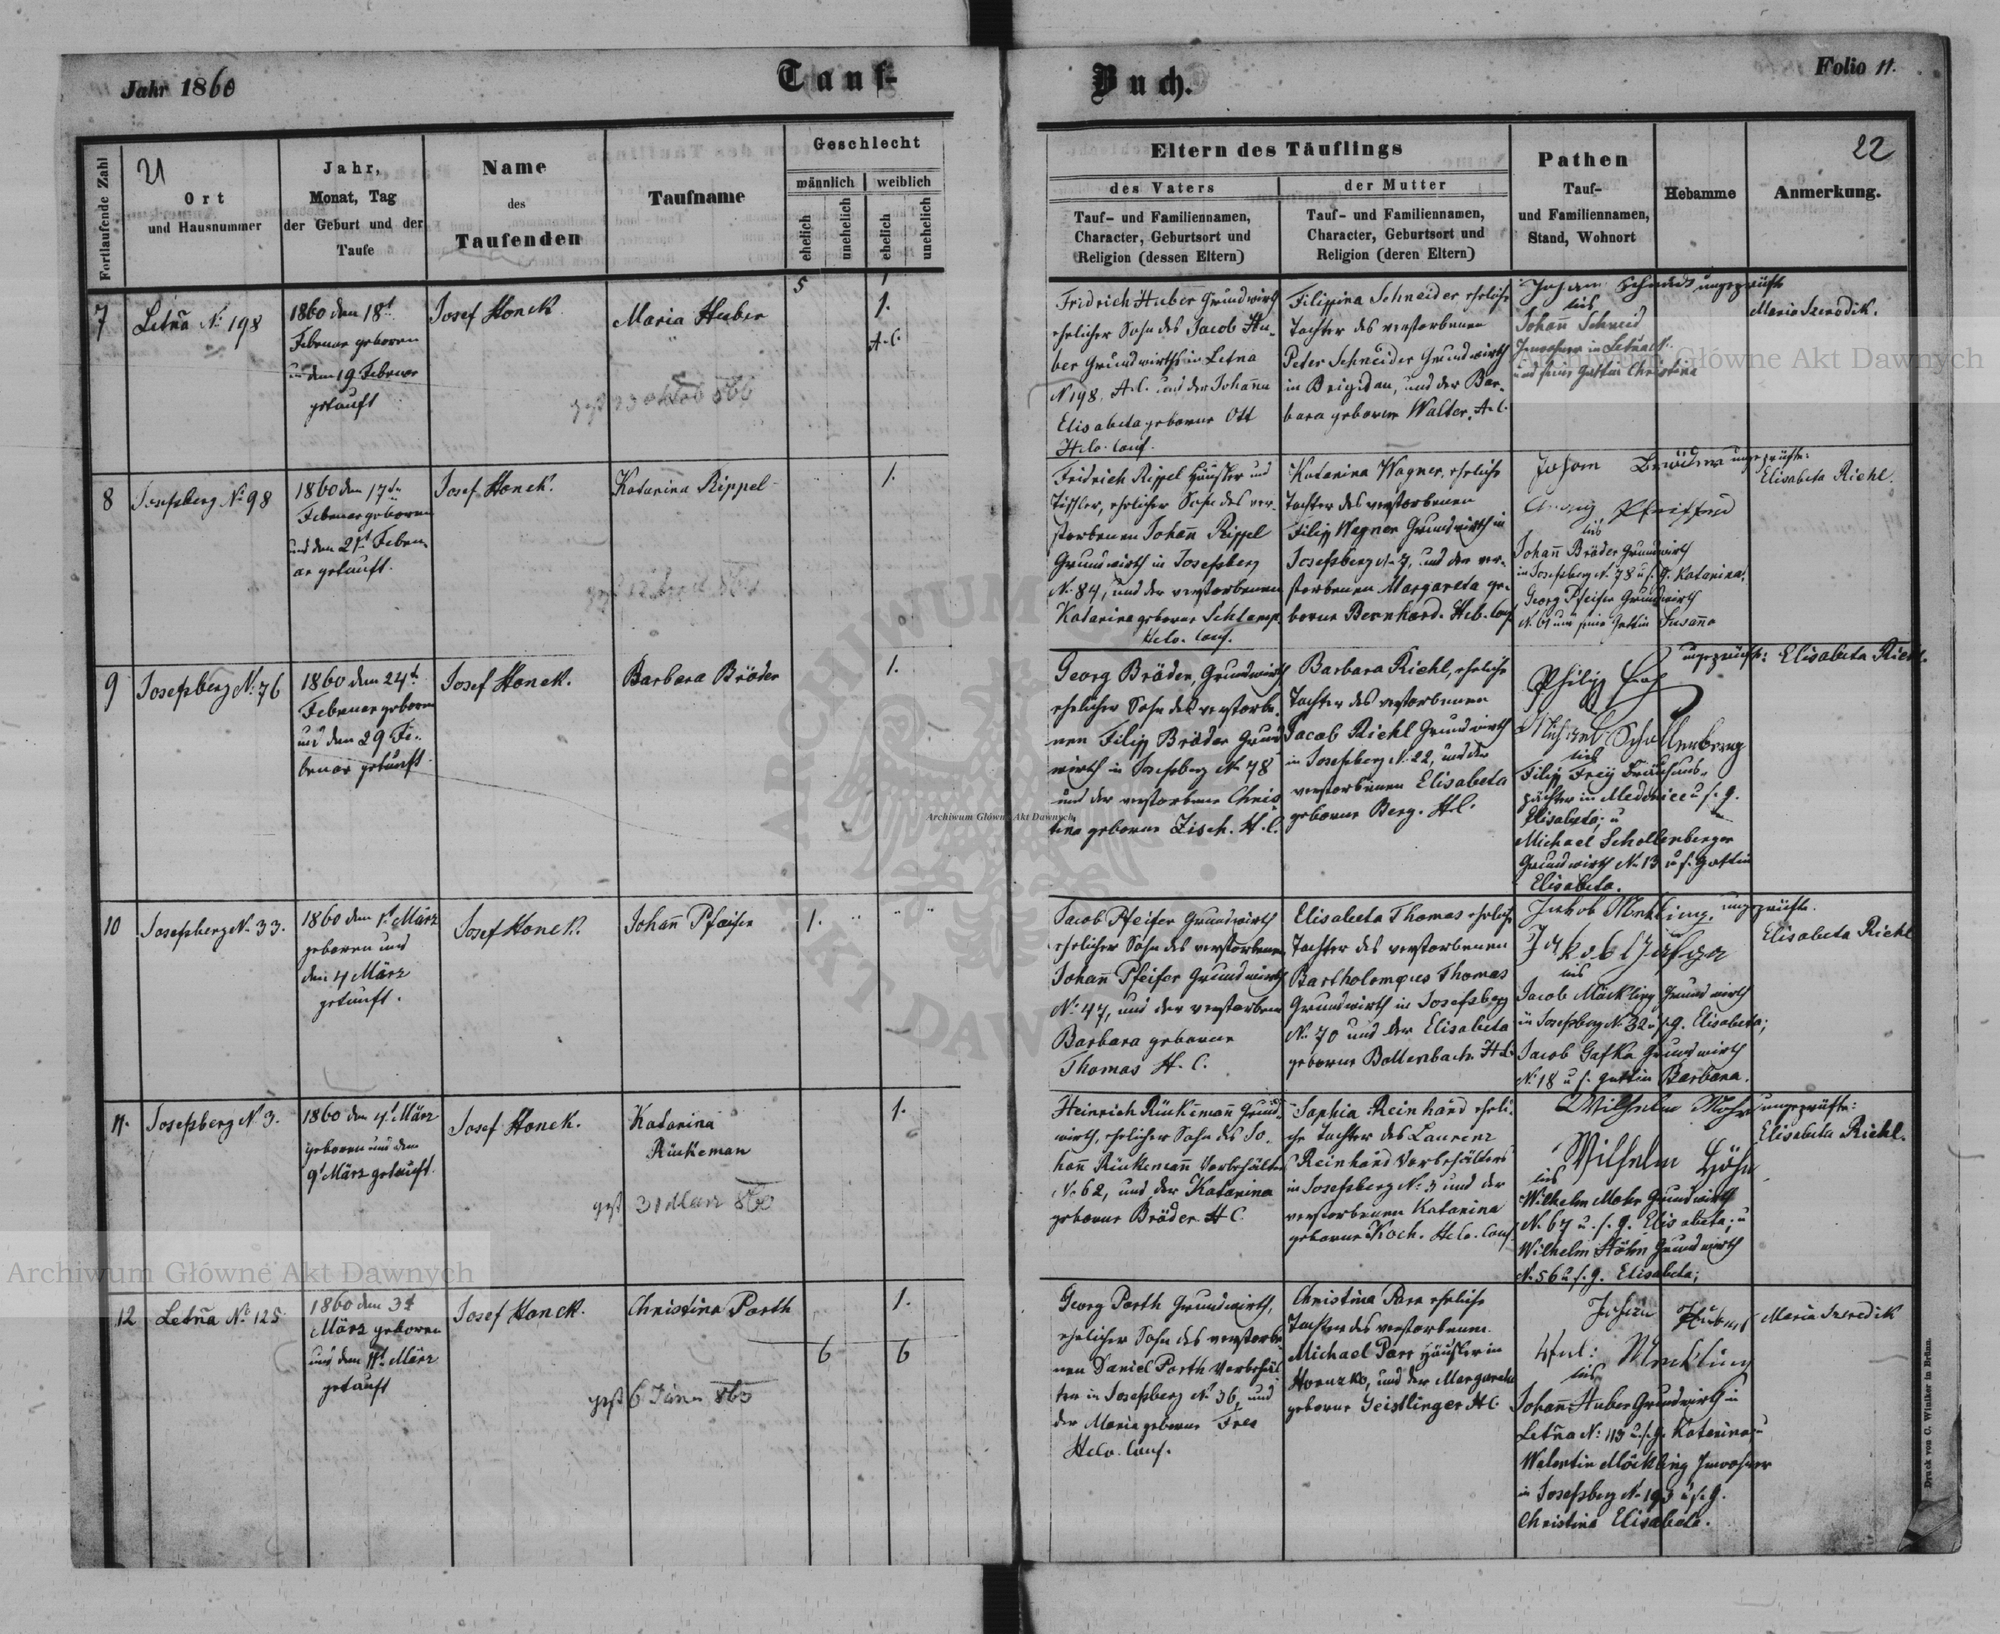 Jahr 1860
Tauf-
Buch.
Folio 11.
21
22
Fortlaufende Zahl
Ort
und Hausnummer
Jahr,
Monat, Tag
der Geburt und der
Taufe
Name
des
Taufenden
Taufname
Geschlecht
männlich
weiblich
ehelich
unehelich
ehelich
unehelich
Eltern des Täuflings
des Vaters
Tauf- und Familiennamen,
Character, Geburtsort und
Religion (dessen Eltern)
der Mutter
Tauf- und Familiennamen,
Character, Geburtsort und
Religion (deren Eltern)
Pathen
Tauf-
und Familiennamen,
Stand, Wohnort
Hebamme
Anmerkung.
5
1
7
Letña No 198
1860 den 18t
Februar geboren
und den 19 Februar
getauft
Josef Honek
Maria Huber
1.
A. C.
gest 23 Oktob 866
Fridrich Huber Grundwirth
ehelicher Sohn des Jacob Hu-
ber Grundwirths in Letna
No 198. A.C. und der Johanna
Elisabeta geborne Ott
Helv. Conf.
Filippina Schneider eheliche
Tochter des verstorbenen
Peter Schneider Grundwirth
in Brigidau, und der Bar-
bara geborne Walter. A.C.
Johann Schmid
bis
Johann Schmid
Inwohner in Letna
und seine Gattin Christina
ungeprüfte
Maria Szerodik.
8
Josefsberg No 98
1860 den 17tn
Februar geboren
und den 21t Febru
ar getauft.
Josef Honek.
Katarina Rippel
1.
Fridrich Rippel Häusler und
Tischler, ehelicher Sohn des ver-
storbenen Johann Rippel
Grundwirth in Josefsberg
No 84, und der verstorbenen
Katarina geborne Schlamp
Helv. Conf.
Katarina Wagner, eheliche
Tochter des verstorbenen
Filipp Wagner Grundwirth in
Josefsberg No 7, und der ver-
storbenen Margareta ge-
borne Bernhard. Helv. Conf
Johann Bröder
Georg Pfeiffer
bis
Johann Bröder Grundwirth
in Josefsberg No 78 u s. G. Katarina.
Georg Pfeifer Grundwirth
No 61 und seine Gattin Susanna
ungeprüfte:
Elisabeta Riehl.
9
Josefsberg No 76
1860 den 24t
Februar geboren
und den 29 Fe-
bruar getauft.
Josef Honek.
Barbara Bröder
1.
Georg Bröder, Grundwirth
ehelicher Sohn des verstorbe-
nen Filipp Bröder Grund
wirth in Josefsberg No 78
und der verstorbene Chris-
tina geborne Zisch. H. C.
Barbara Riehl, eheliche
Tochter des verstorbenen
Jacob Riehl Grundwirth
in Josefsberg No 22, und der
verstorbenen Elisabeta
geborne Berg. H.C.
Michael Schollenberger
bis
Filipp Frey Bräuhaus-
pächter in Medenice u s. g.
Elisabeta; u
Michael Schollenberger
Grundwirth No 13 u s. Gattin
Elisabeta.
ungeprüfte: Elisabeta Riehl.
10
Josefsberg No 33.
1860 den 1t März
geboren und
den 4 März
getauft.
Josef Honek.
Johann Pfeifer
1.
Jacob Pfeifer Grundwirth
ehelicher Sohn des verstorbenen
Johann Pfeifer Grundwirth
No 47, und der verstorbene
Barbara geborne
Thomas H. C.
Elisabeta Thomas eheliche
Tochter des verstorbenen
Bartholomeus Thomas
Grundwirth in Josefsberg
No 70 und der Elisabeta
geborne Bollenbach. H.C.
Jakob Mekling.
bis
Jacob Möckling Grundwirth
in Josefsberg No 32 u s. g. Elisabeta;
Jacob Gafka Grundwirth
No 18 u s. Gattin Barbara.
ungeprüfte.
Elisabeta Riehl
11.
Josefsberg No 3.
1860 den 4t März
geboren und den
9t März getauft.
Josef Honek.
Katarina
Rinkeman
1.
gest 31 März 860
Heinrich Rinkemann Grund-
wirth, ehelicher Sohn des Jo-
hann Rinkemann Vorbehälter
No 62, und der Katarina
geborne Bröder H C.
Sophia Reinhard eheli-
che Tochter des Laurenz
Reinhard Vorbehälters
in Josefsberg No 3 und der
verstorbenen Katarina
geborne Koch. Helv. Conf
Wilhelm Mohr
Wilhelm Höhn
bis
Wilhelm Mohr Grundwirth
No 67 u. s. g. Elisabeta; u
Wilhelm Höhn Grundwirth
No 56 u s. g. Elisabeta;
ungeprüfte:
Elisabeta Riehl.
12
Letña No 125.
1860 den 3t
März geboren
und den 11t März
getauft
Josef Honek.
Christina Porth
1.
6
6
gest 6 Jänn 863
Georg Porth Grundwirth,
ehelicher Sohn des verstorbe-
nen Daniel Porth Vorbehäl-
ter in Josefsberg No 36, und
der Maria geborne Frea
Helv. Conf.
Christina Parr eheliche
Tochter des verstorbenen
Michael Parr Häusler in
Horuzko, und der Margareta
geborne Geistlinger H C
Johann Huber
Wal: Mecklling
bis
Johann Huber Grundwirth in
Letña No 115 u s. g. Katarina; u
Walentin Möckling Inwohner
in Josefsberg No 193 u s. g.
Christina Elisabeta.
Maria Szeredik
Druck von C. Winiker in Brünn.
Archiwum Główne Akt Dawnych
Archiwum Główne Akt Dawnych
Archiwum Główne Akt Dawnych